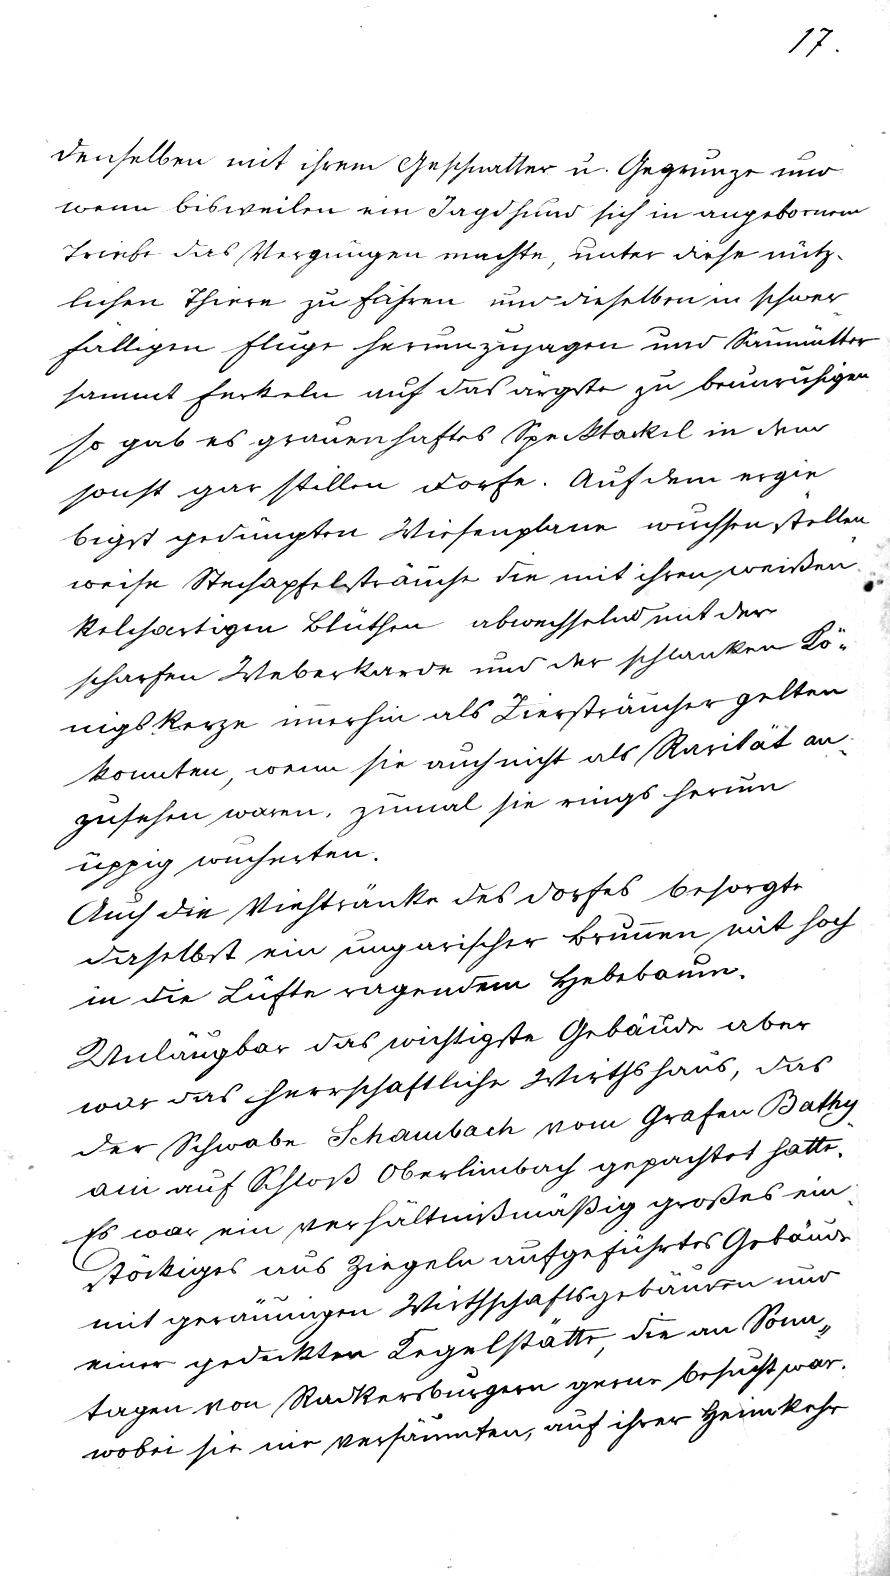 17.
denselben mit ihrem Geschnatter u. Gegrunze und
wenn bisweilen ein Jagdhund sich in angebornem
Triebe das Vergnügen machte, unter diese nütz-
lichen Thiere zu fahren und dieselben in schwer
fälligen Fluge herumzujagen und Saumütter
sammt Ferkeln auf das ärgste zu beunruhigen
so gab es grauenhaftes Specktackel in dem
sonst gar stillen Dorfe. Auf dem ergie
bigst gedüngten Wiesenplane wuchsen stellen
weise Stechapfelsträuche die mit ihren weißen
kelchartigen Blüthen abwechselnd mit der
scharfen Weberkarde und der schlanken Kö-
nigskerze im̅erhin als Ziersträucher gelten
konnten, wenn sie auch nicht als Rarität an-
zusehen waren, zumal sie rings herum
üppig wucherten.
Auch die Viehtränke des Dorfes besorgte
daselbst ein ungarischer Brun̅en mit hoch
in die Lüfte ragendem Hebebaum.
Unläugbar das wichtigste Gebäude aber
war das herrschaftliche Wirthshaus, das
der Schwabe Schambach vom Grafen Bathy
ani auf Schloß Oberlimbach gepachtet hatte.
Es war ein verhältnißmäßig großes ein-
stöckiges aus Ziegeln aufgeführtes Gebäude
mit geräumigen Wirthschaftsgebäuden und
einer gedeckten Kegelstätte, die an Sonn„
tagen von Radkersburgern gerne besucht war.
wobei sie nie versäumten, auf ihrer Heimkehr